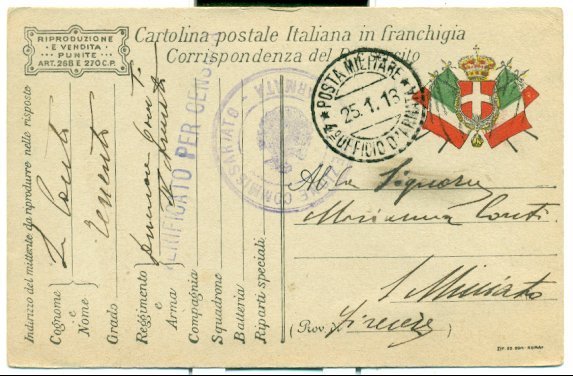 RIPRODUZIONE
E VENDITA
PUNITE
ART. 268 E 270 C.P.
Cartolina postale Italiana in franchigia
Corrispondenza del
POSTA MILITARE
25.1.18
UFFICIO D'
VERIFICATO PER CENSURA
COMMISSARIATO
Alla Signora
Marianna Conti
S Miniato
(Prov. Firenze)
Indirizzo del mittente da riprodurre nelle risposte
Cognome Conti
e
Nome
Grado Tenente
Reggimento
e
Arma
Compagnia
Squadrone
Batteria
Riparti speciali